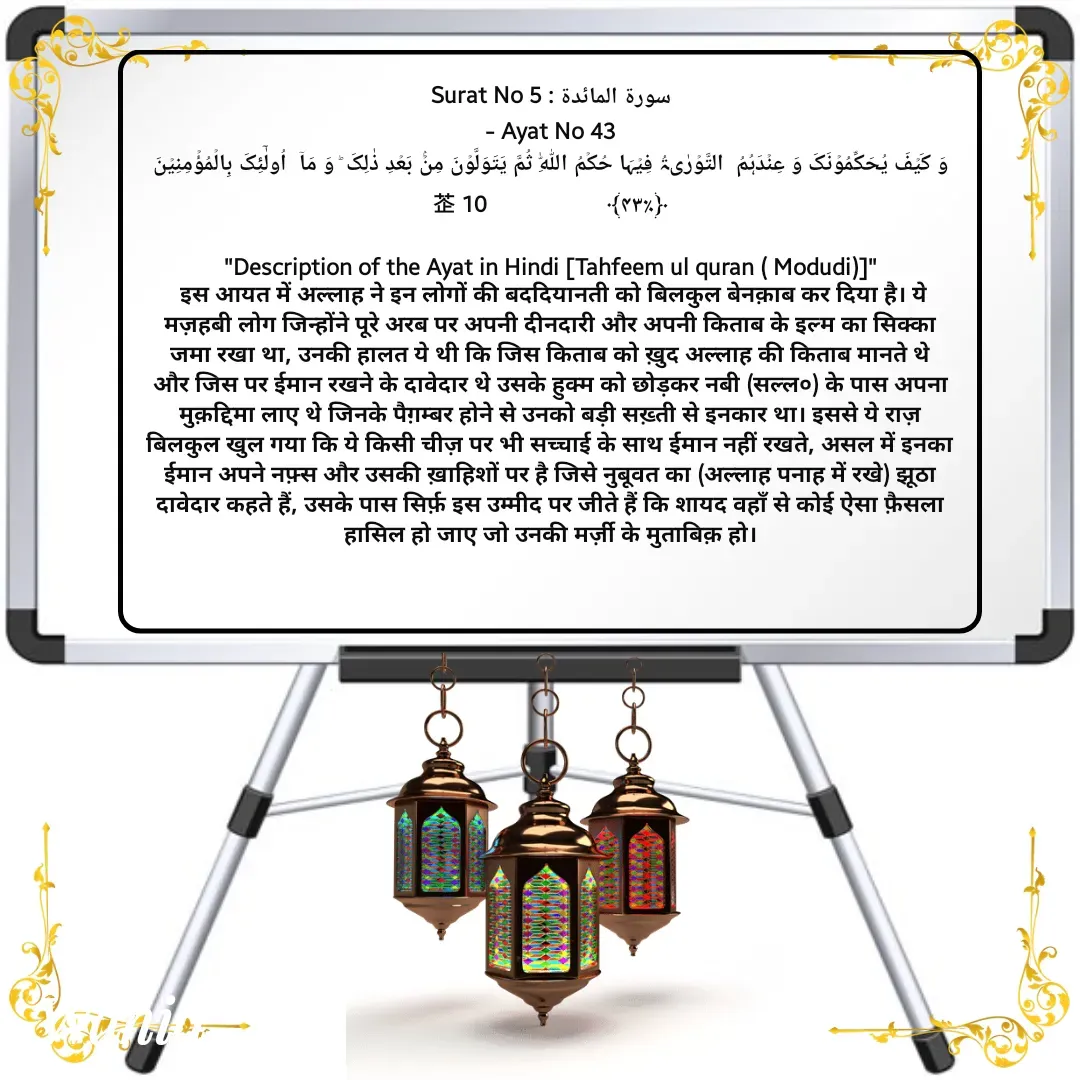 Surat No 5 : سورة المائدة
- Ayat No 43
وَ کَیۡفَ یُحَکِّمُوۡنَکَ وَ عِنۡدَہُمُ التَّوۡرٰىۃُ فِیۡہَا حُکۡمُ اللّٰہِ ثُمَّ یَتَوَلَّوۡنَ مِنۡۢ بَعۡدِ ذٰلِکَ ؕ وَ مَاۤ اُولٰٓئِکَ بِالۡمُؤۡمِنِیۡنَ
﴿۴۳٪﴾ 10
"Description of the Ayat in Hindi [Tahfeem ul quran ( Modudi)]"
इस आयत में अल्लाह ने इन लोगों की बददियानती को बिलकुल बेनक़ाब कर दिया है। ये
मज़हबी लोग जिन्होंने पूरे अरब पर अपनी दीनदारी और अपनी किताब के इल्म का सिक्का
जमा रखा था, उनकी हालत ये थी कि जिस किताब को ख़ुद अल्लाह की किताब मानते थे
और जिस पर ईमान रखने के दावेदार थे उसके हुक्म को छोड़कर नबी (सल्ल०) के पास अपना
मुक़द्दिमा लाए थे जिनके पैग़म्बर होने से उनको बड़ी सख़्ती से इनकार था। इससे ये राज़
बिलकुल खुल गया कि ये किसी चीज़ पर भी सच्चाई के साथ ईमान नहीं रखते, असल में इनका
ईमान अपने नफ़्स और उसकी ख़ाहिशों पर है जिसे नुबूवत का (अल्लाह पनाह में रखे) झूठा
दावेदार कहते हैं, उसके पास सिर्फ़ इस उम्मीद पर जीते हैं कि शायद वहाँ से कोई ऐसा फ़ैसला
हासिल हो जाए जो उनकी मर्ज़ी के मुताबिक़ हो।